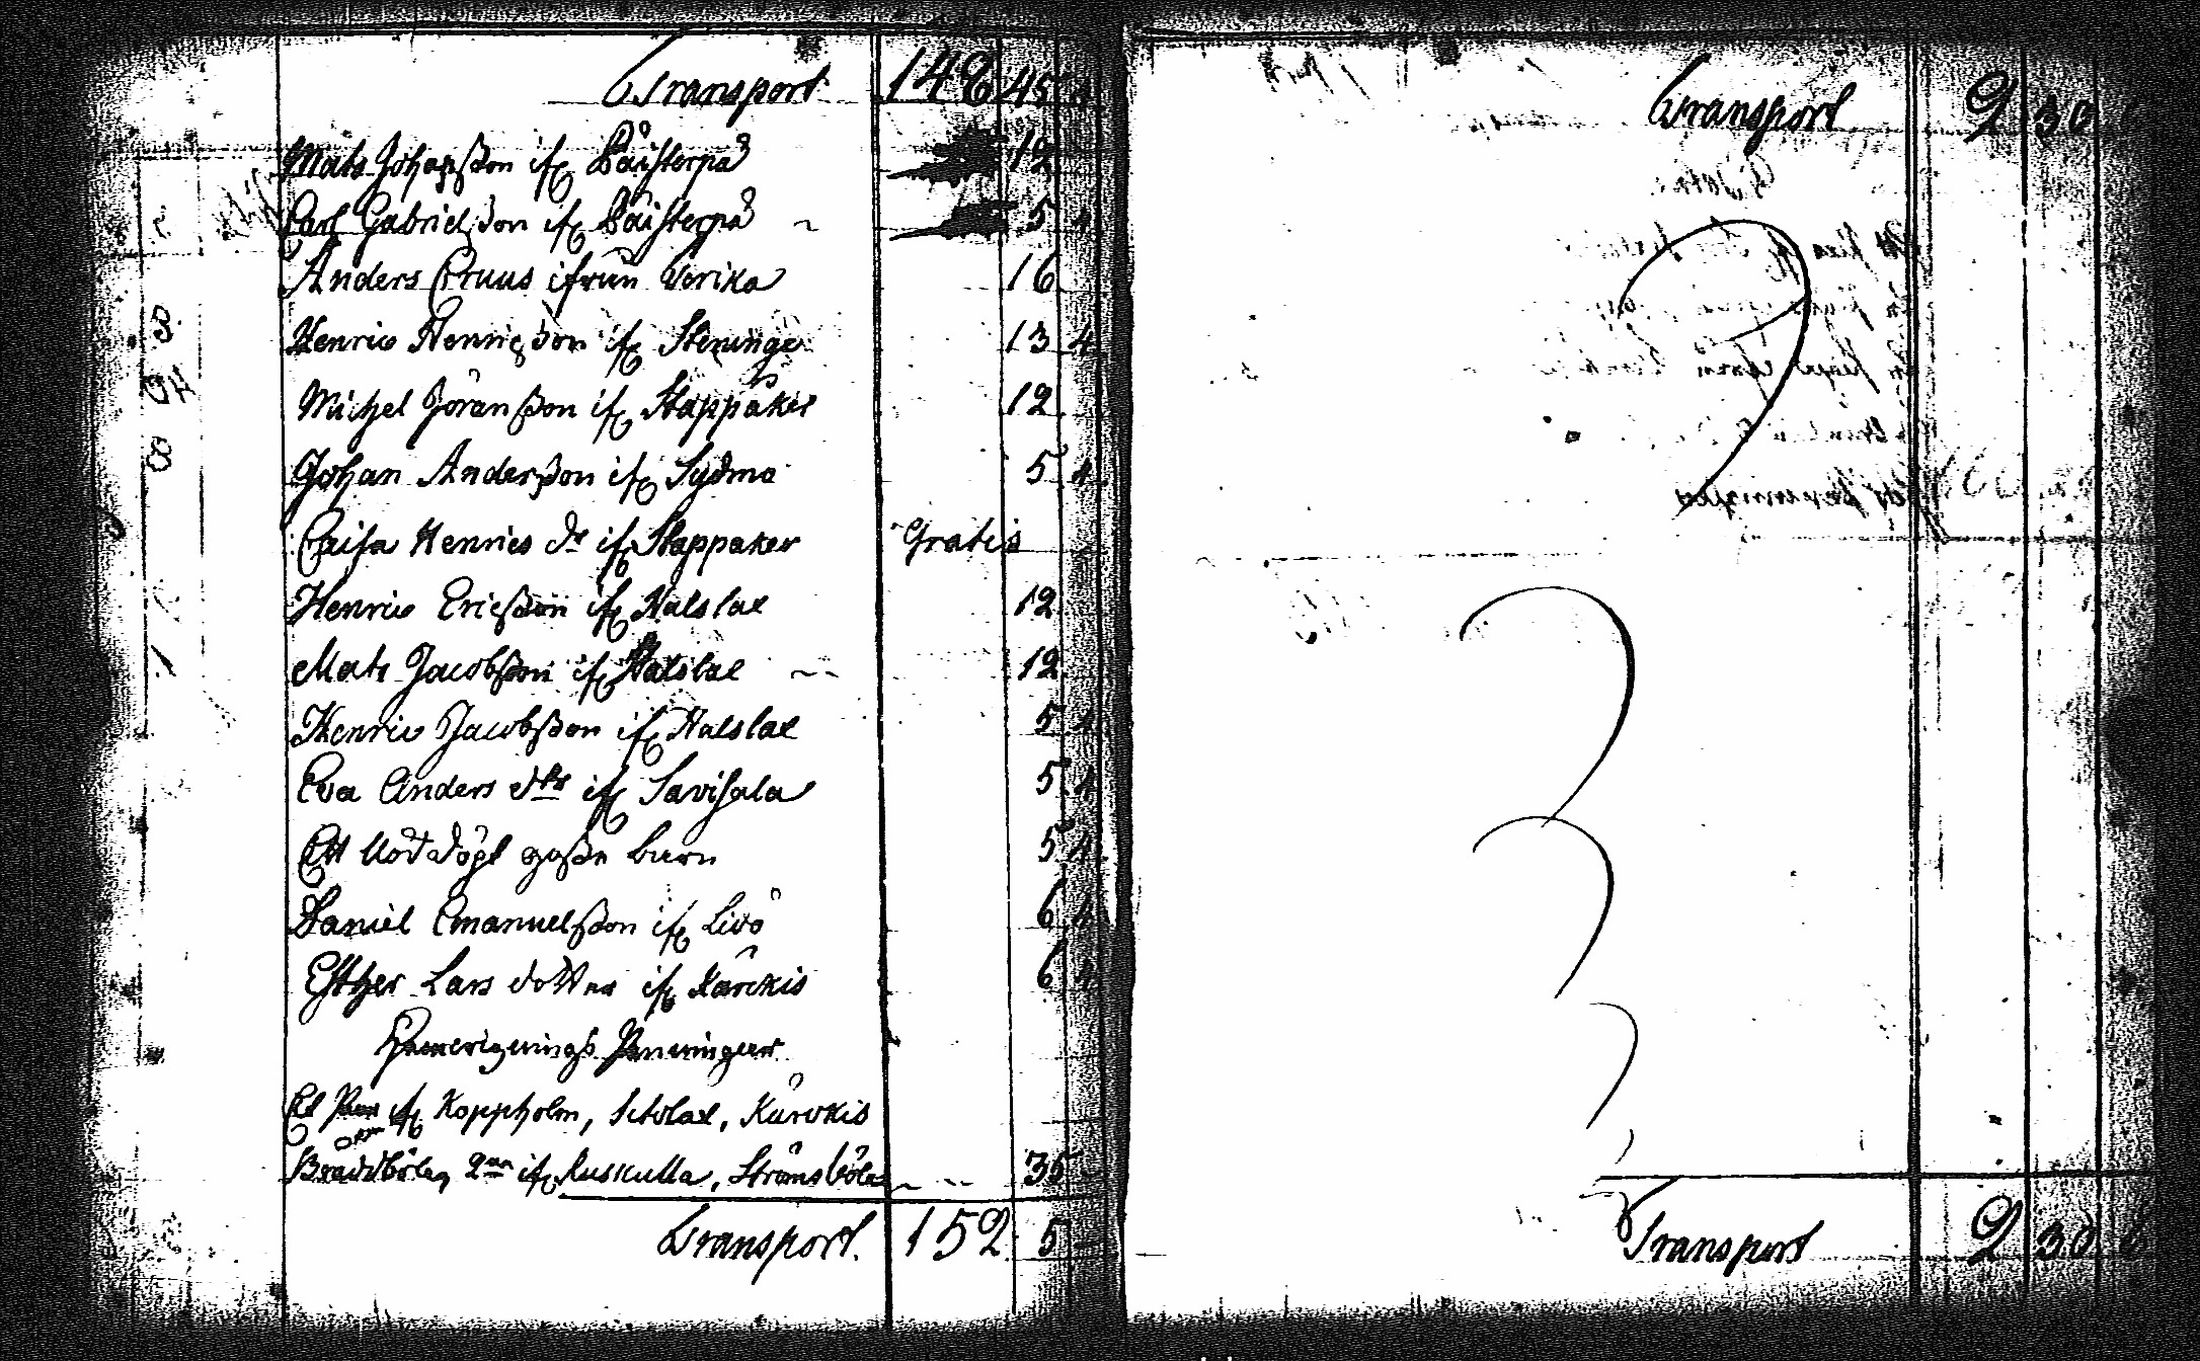 Transport 148 45
Mats Johansson if Päisterpä 12
Carl Gabrielsson if Päisterpä 5 4
Anders Cruus ifrån Verika 16
Henric Henricsson if Steninge 13 4
Michel Jöransson if Stappåker 12
Johan Andersson if Sydmo 5 4
Caisa Henrics dr if Stappåker Gratis
Henric Ericsson if Halslax 12
Mats Jacobsson if Halslax 12
Henric Jacobsson if Halslax 5 4
Eva Anders dtr if Savisala 5 4
Ett Nöd döpt gosse barn 5 4
Daniel Emanuelsson if Livö 6 4
Esther Lars dotter if Kärckis 6 4
Penningar
if Koppholm, Kärckis
if Ruskulla, Strömsböle 35
Transport. 152 5
Transport 2 30
Transport 2 30